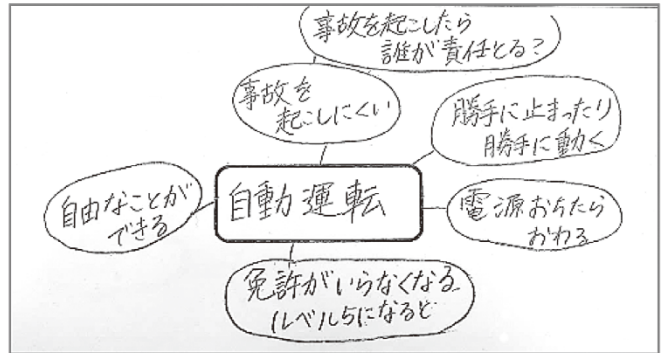 事故を起こしたら
誰が責任とる?
事故を
起こしにくい
勝手に止まったり
勝手に動く
自由なことが
できる
自動運転
電源おちたら
おわる
免許がいらなくなる
レベル5になると